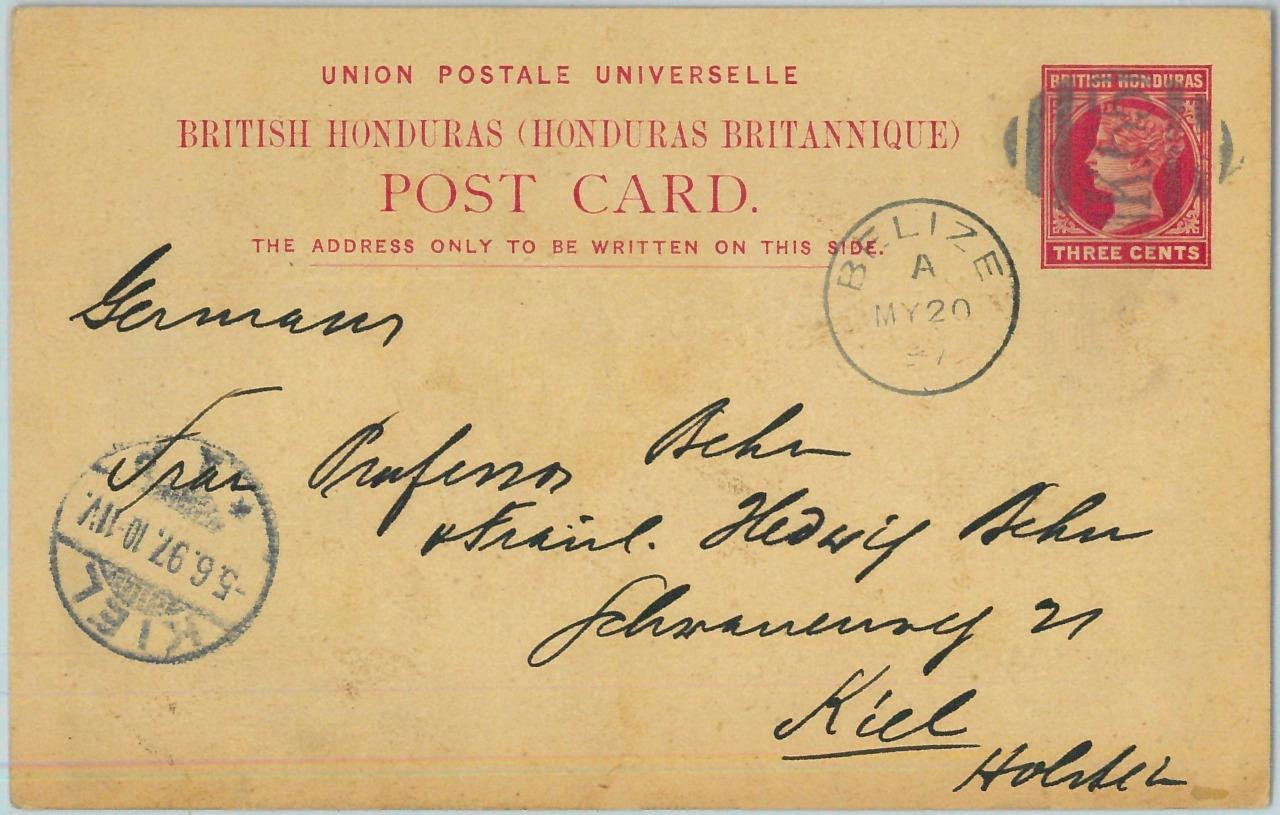 UNION POSTALE UNIVERSELLE
BRITISH HONDURAS (HONDURAS BRITANNIQUE)
POST CARD.
THE ADDRESS ONLY TO BE WRITTEN ON THIS SIDE.
BRITISH HONDURAS
THREE CENTS
BELIZE
A
MY 20
Germany
Frau Professor Behn
u Fräul. Hedwig Behn
Schwanenweg 21
Kiel
Holstein
KIEL
-5.6.97.10-11V.